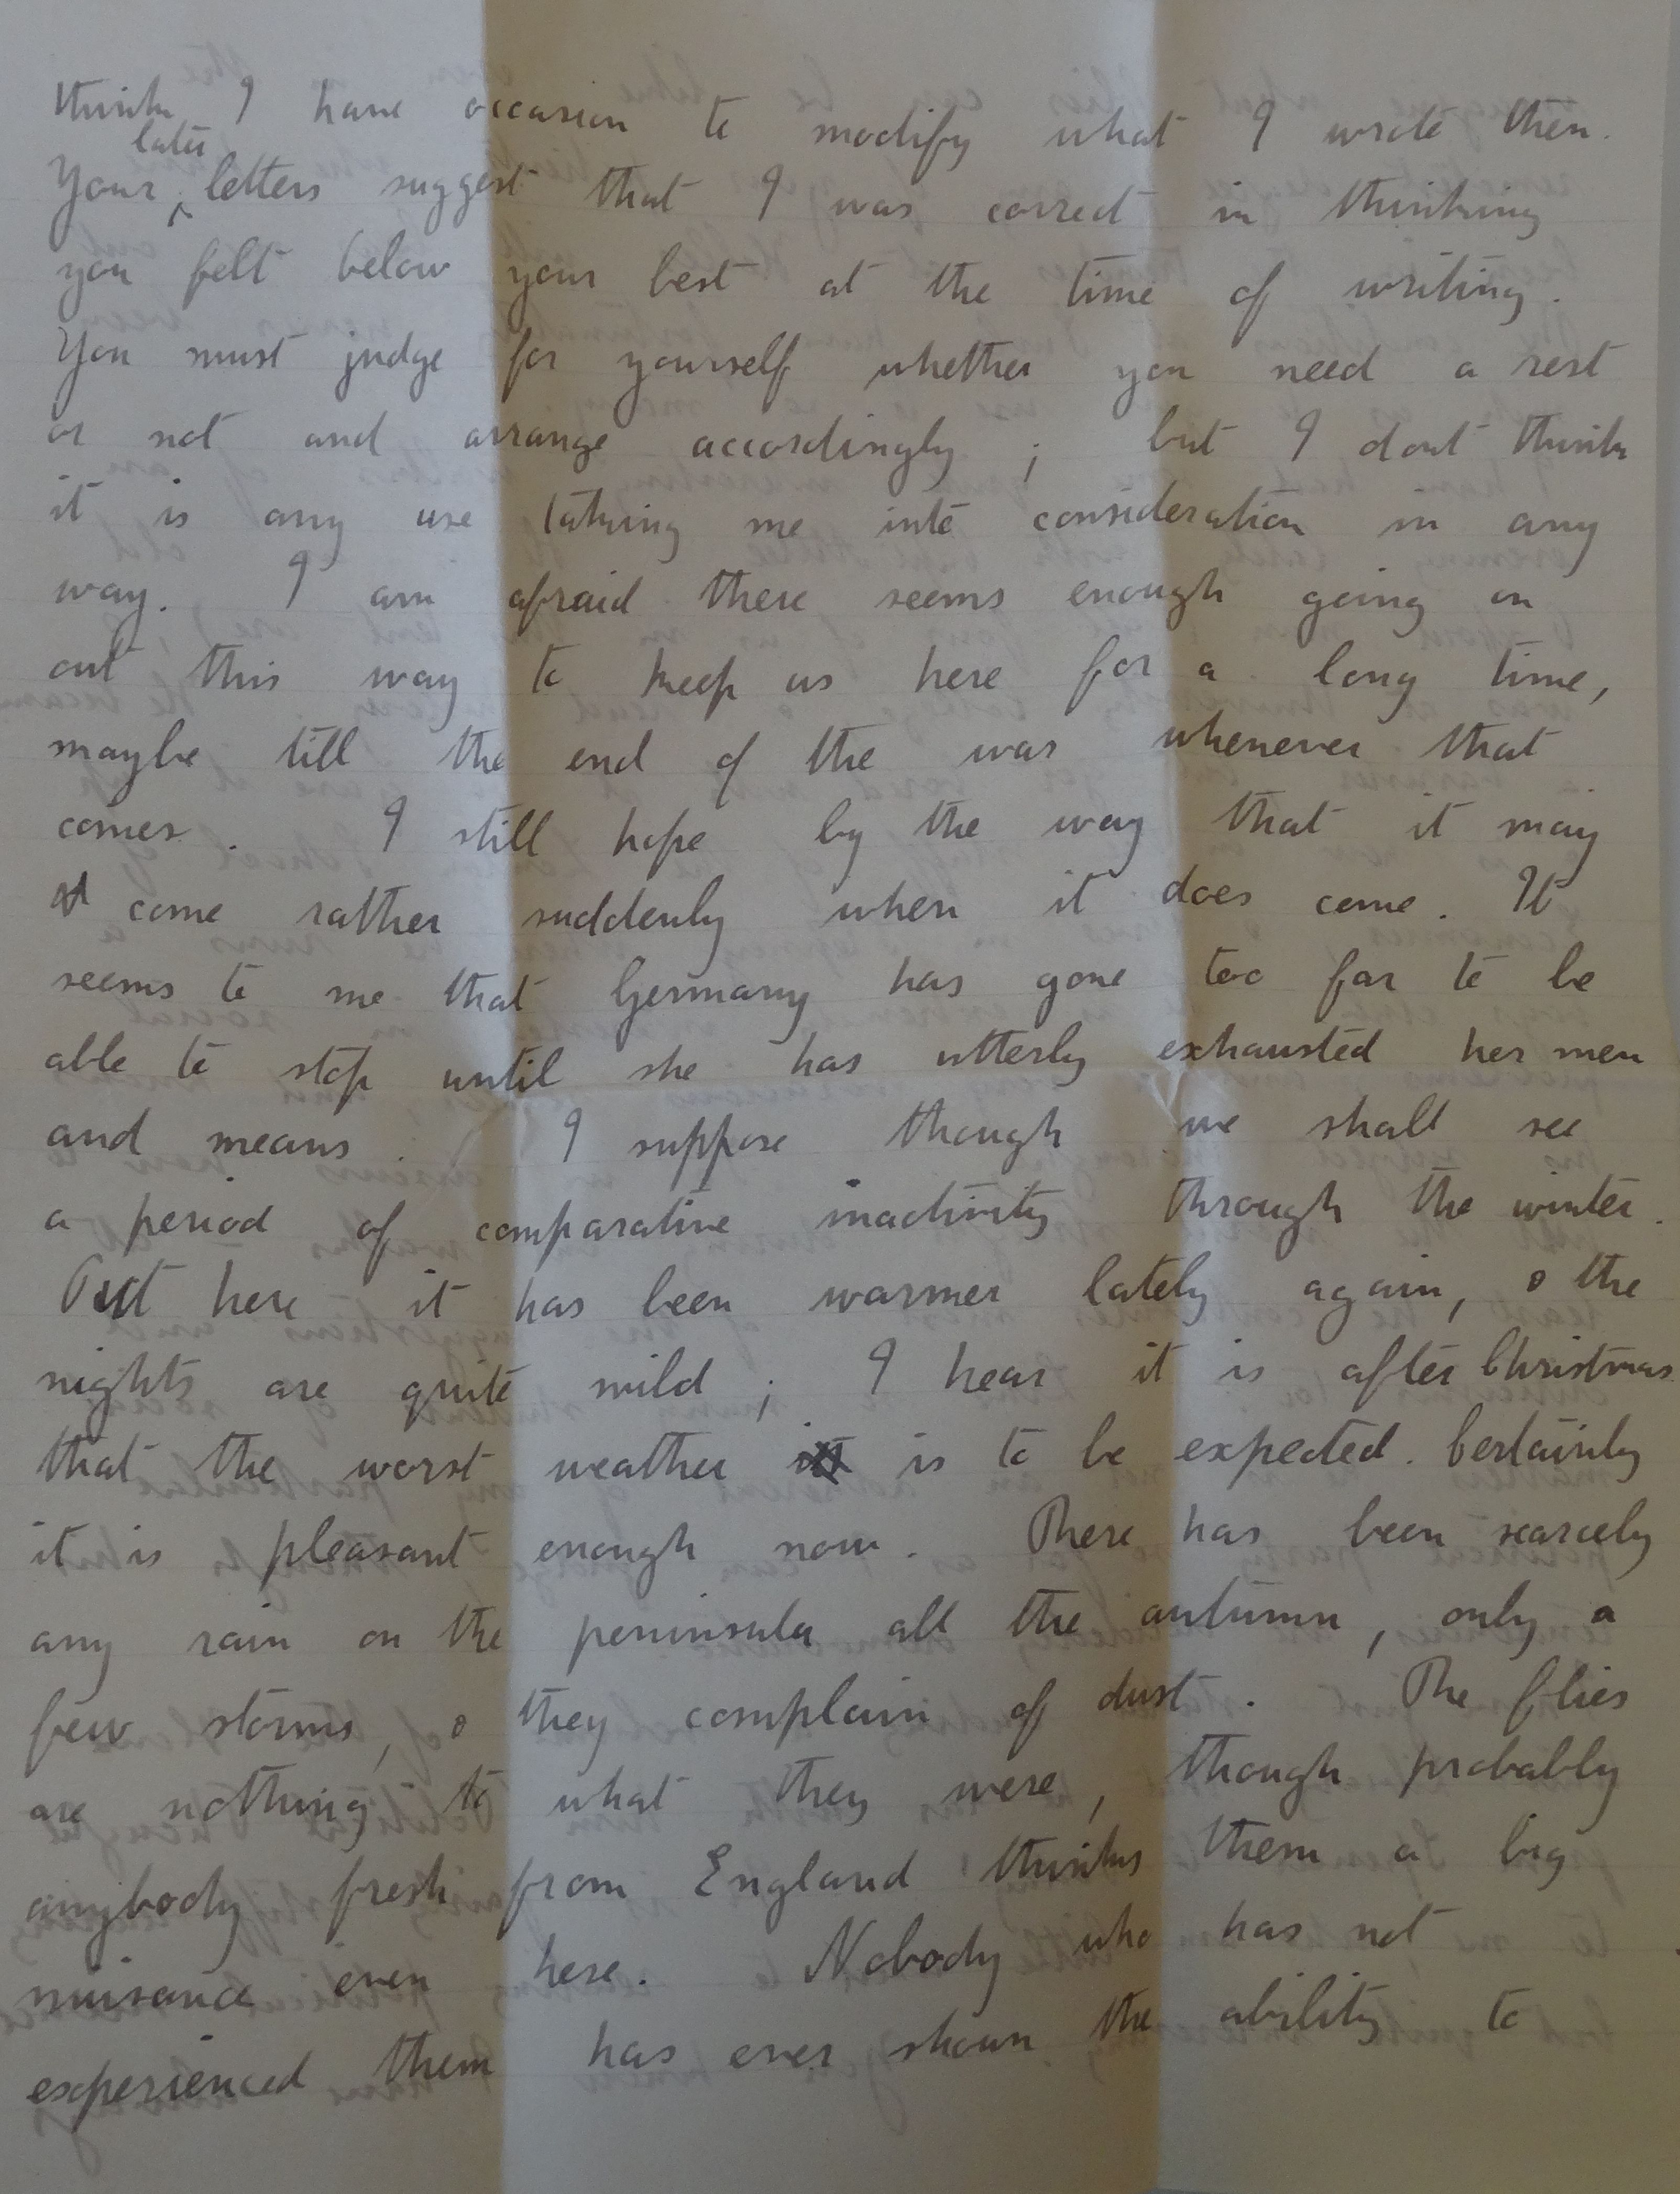 think I have occasion to modify what I wrote then.
later
Your ^ letters suggest that I was correct in thinking
you felt below your best at the time of writing.
You must judge for yourself whether you need a rest
or not and arrange accordingly ; but I dont think
it is any use taking me into consideration in any
way. I am afraid there seems enough going on
out this way to keep us here for a long time,
maybe till the end of the war whenever that
comes. I still hope by the way that it may
come rather suddenly when it does come. It
seems to me that Germany has gone too far to be
able to stop until she has utterly exhausted her men
and means. I suppose though we shall see
a period of comparative inactivity through the winter.
Out here it has been warmer lately again, & the
nights are quite mild ; I hear it is after Christmas
that the worst weather is to be expected. Certainly
it is pleasant enough now. There has been scarcely
any rain on the peninsula all the autumn, only a
few storms, & they complain of dust. The flies
are nothing to what they were, though probably
anybody fresh from England thinks them a big
nuisance even here. Nobody who has not
experienced them has ever shown the ability to